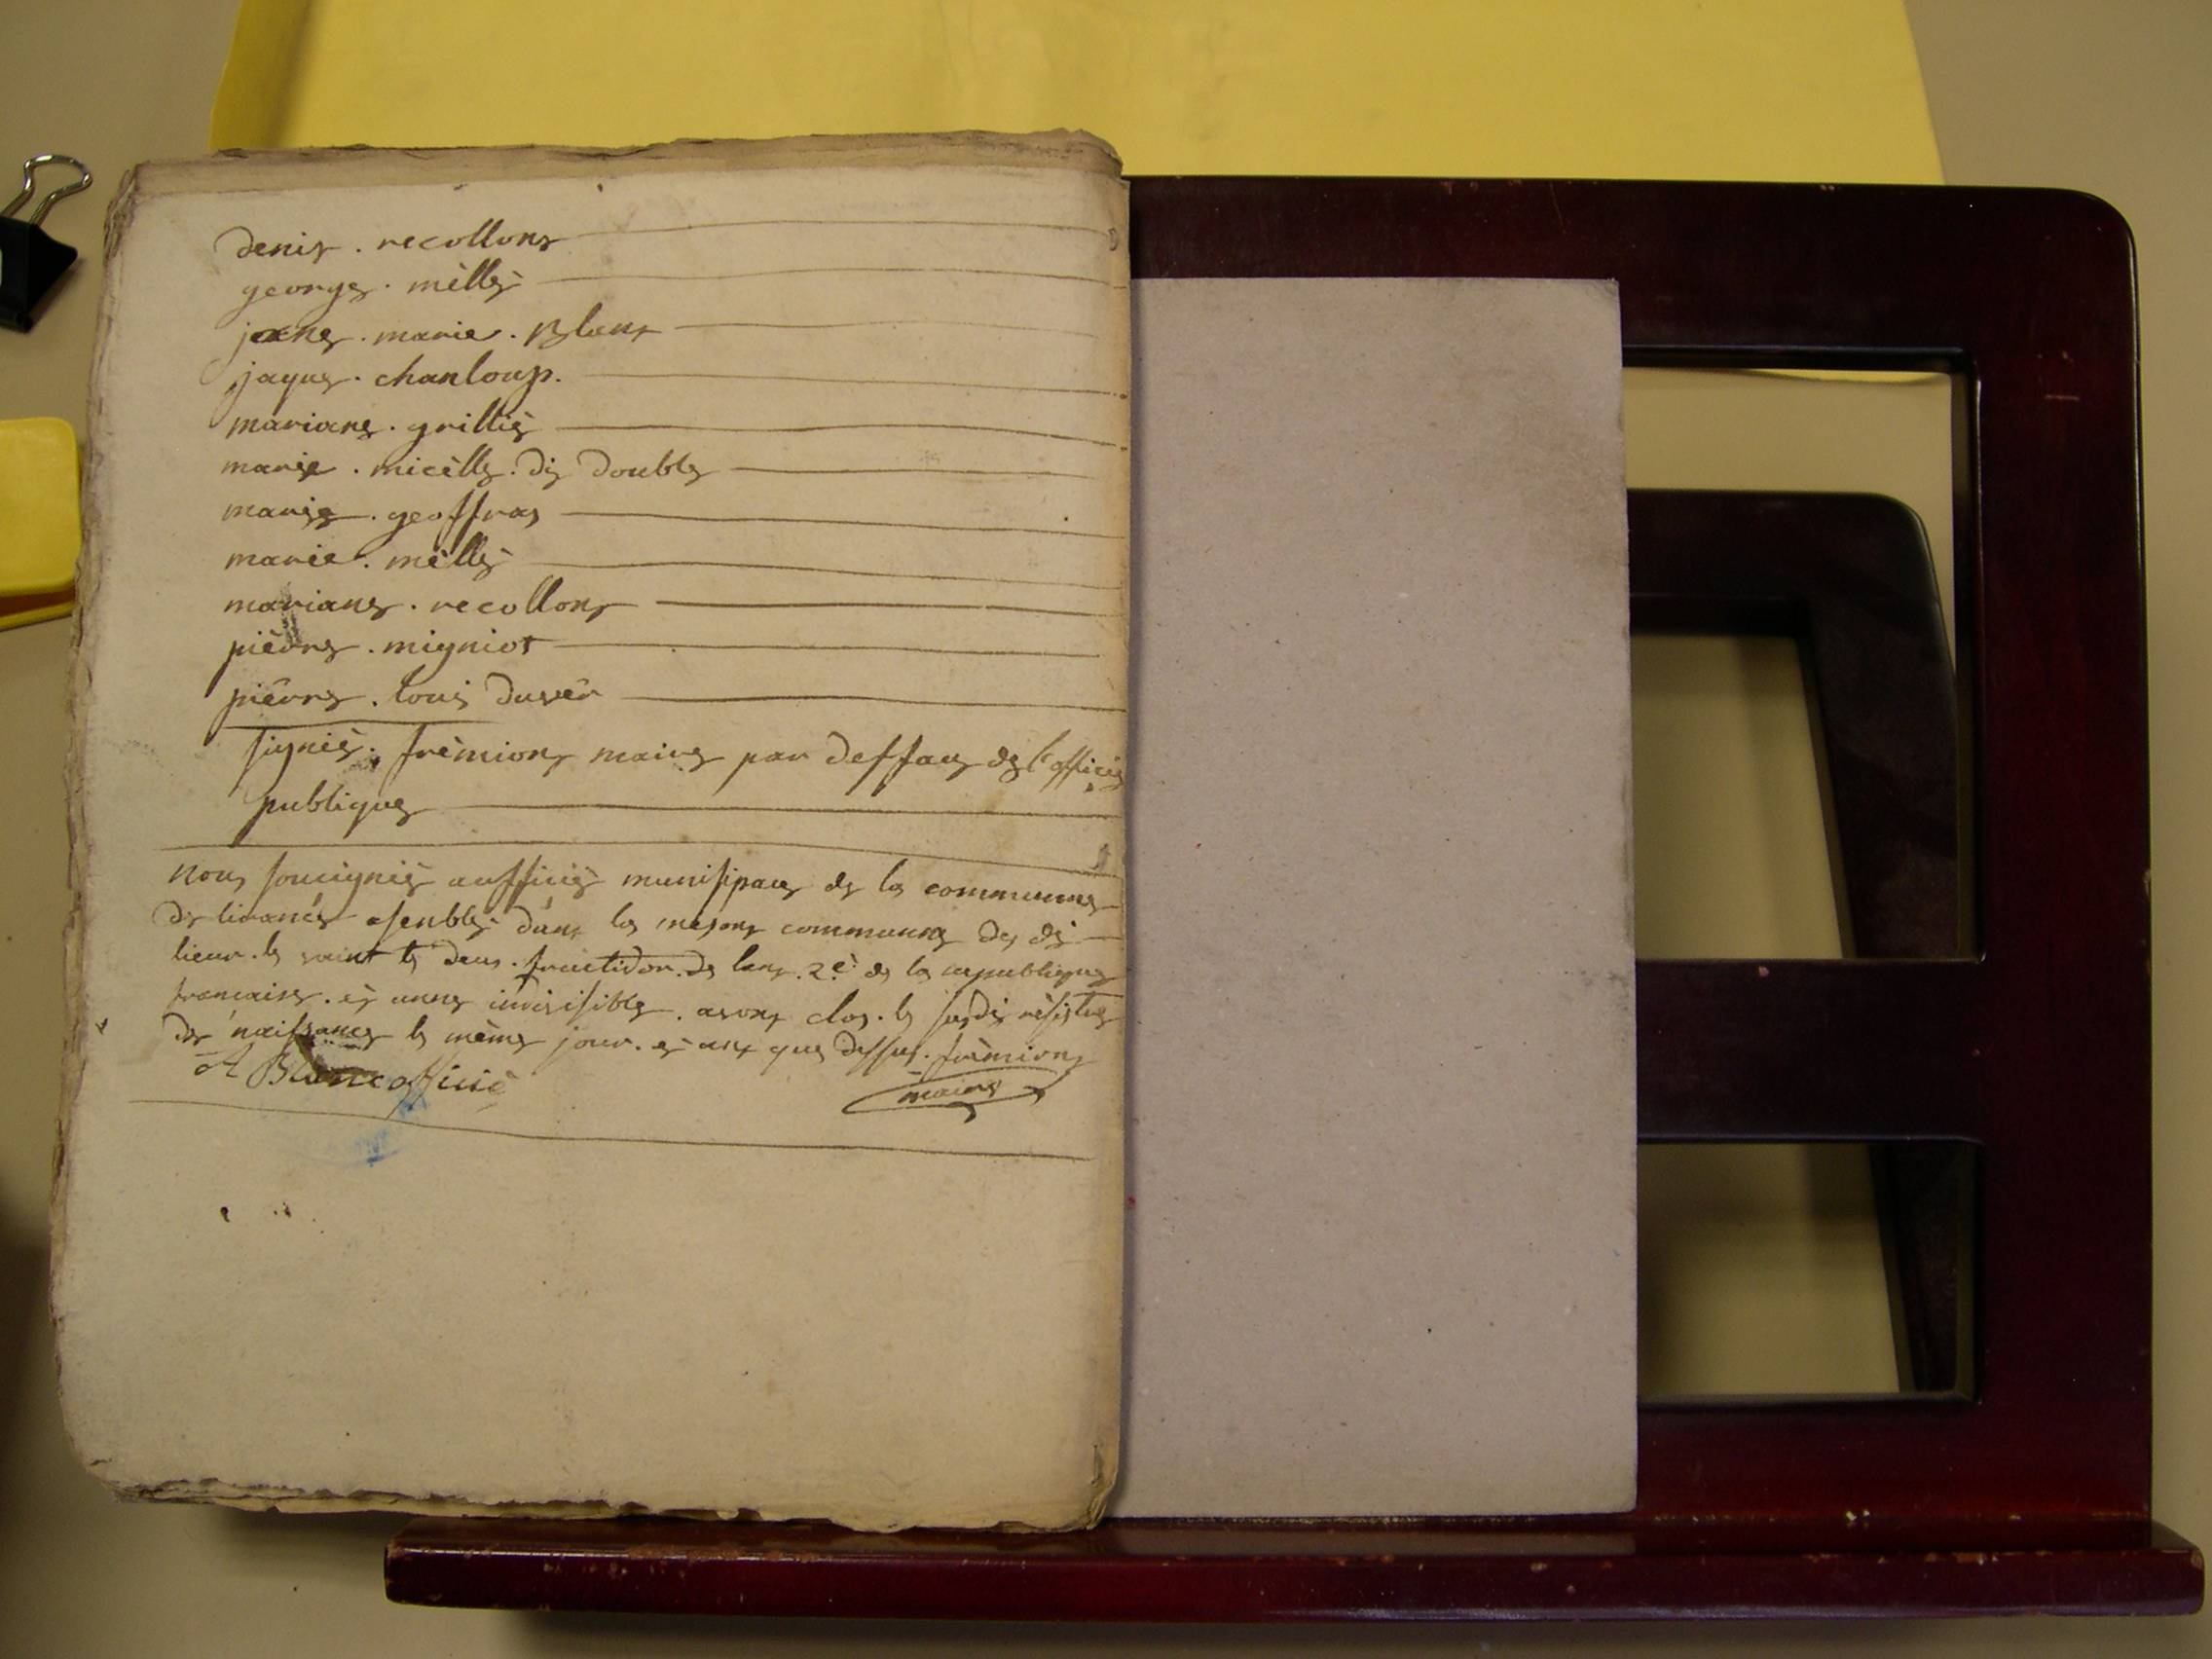 denis . recollons
george . mille
jeane . marie . Blanx
jaque . chanloup .
mariane . grillié
marie . micèlle . di double
marie . geoffray
marie . mèlle
mariane . recollons
pièrre . migniot
pièrre . loui duver
signiè . frèmiony maire par deffau de l'officié
publique
nous sousignié aufficié munisipaus de la commune
de livance asenblé dans la mesons commune du di
lieux . le vaint te deus . fructidor . de lans . 2e de la republique
francaise . et unne indivisible . avons clos . le susdi resistre
de naissance le mème jour . et ans que dessus . frèmiony
A Blanc officié
maire